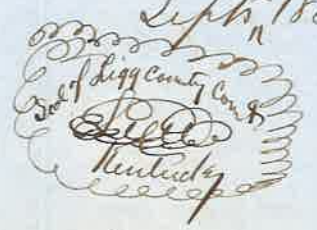 Septr 18
Seal of Trigg County Court
Kentucky